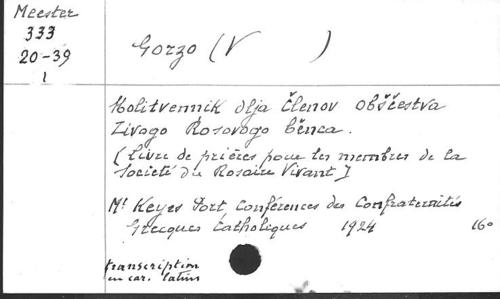 Meester
333
20-39
1
Gorzo (V )
Molitvennik dlja Členov občšestva
Živogo Rosovogo běnca.
(Livre de prières pour les membres de la
Société du Rosaire Vivant)
Mt Keyes Port, Conférences des Confraternités
Grecques Catholiques 1924 16o
transcription
en car. latins